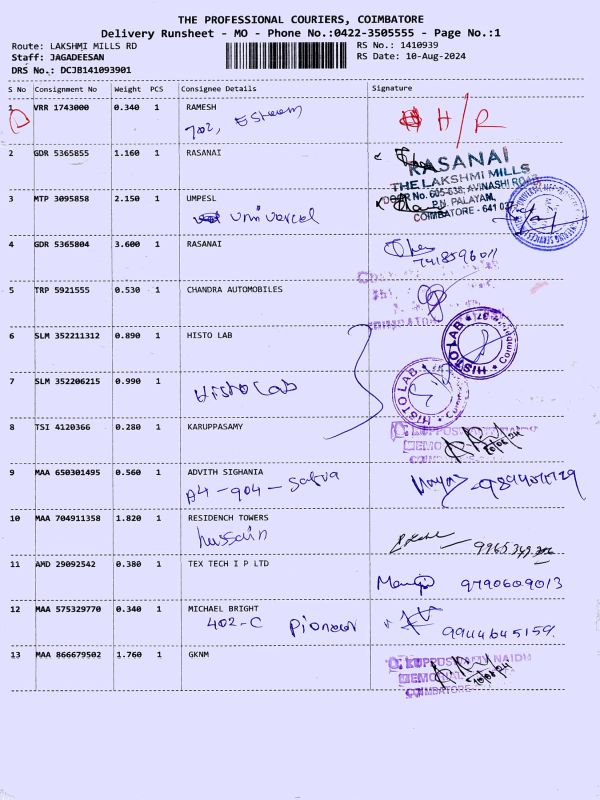 THE PROFESSIONAL COURIERS, COIMBATORE
Delivery Runsheet - MO - Phone No.:0422-3505555 - Page No.:1
Route: LAKSHMI MILLS RD
RS No.: 1410939
Staff: JAGADEESAN
RS Date: 10-Aug-2024
DRS No.: DCJB141093901
S No Consignment No Weight PCS Consignee Details Signature
1 VRR 1743000 0.340 1 RAMESH
702,
H/R
2 GDR 5365855 1.160 1 RASANAI
RASANAI
THE LAKSHMI MILLS
DOOR No. 605-638, AVINASHI ROAD
P.N. PALAYAM,
COIMBATORE - 641 037
3 MTP 3095858 2.150 1 UMPESL
Universal
4 GDR 5365804 3.600 1 RASANAI
7418596011
5 TRP 5921555 0.530 1 CHANDRA AUTOMOBILES
6 SLM 352211312 0.890 1 HISTO LAB
HISTO LAB
7 SLM 352206215 0.990 1
Histo Lab
HISTO LAB
8 TSI 4120366 0.280 1 KARUPPASAMY
9 MAA 650301495 0.560 1 ADVITH SIGHANIA
A4-904-
10 MAA 704911358 1.820 1 RESIDENCH TOWERS
hussain
11 AMD 29092542 0.380 1 TEX TECH I P LTD
9790609013
12 MAA 575329770 0.340 1 MICHAEL BRIGHT
402-C Pioneer
9944645159.
13 MAA 866679502 1.760 1 GKNM
G. KUPPUSWAMY NAIDU
MEMORIAL
COIMBATORE